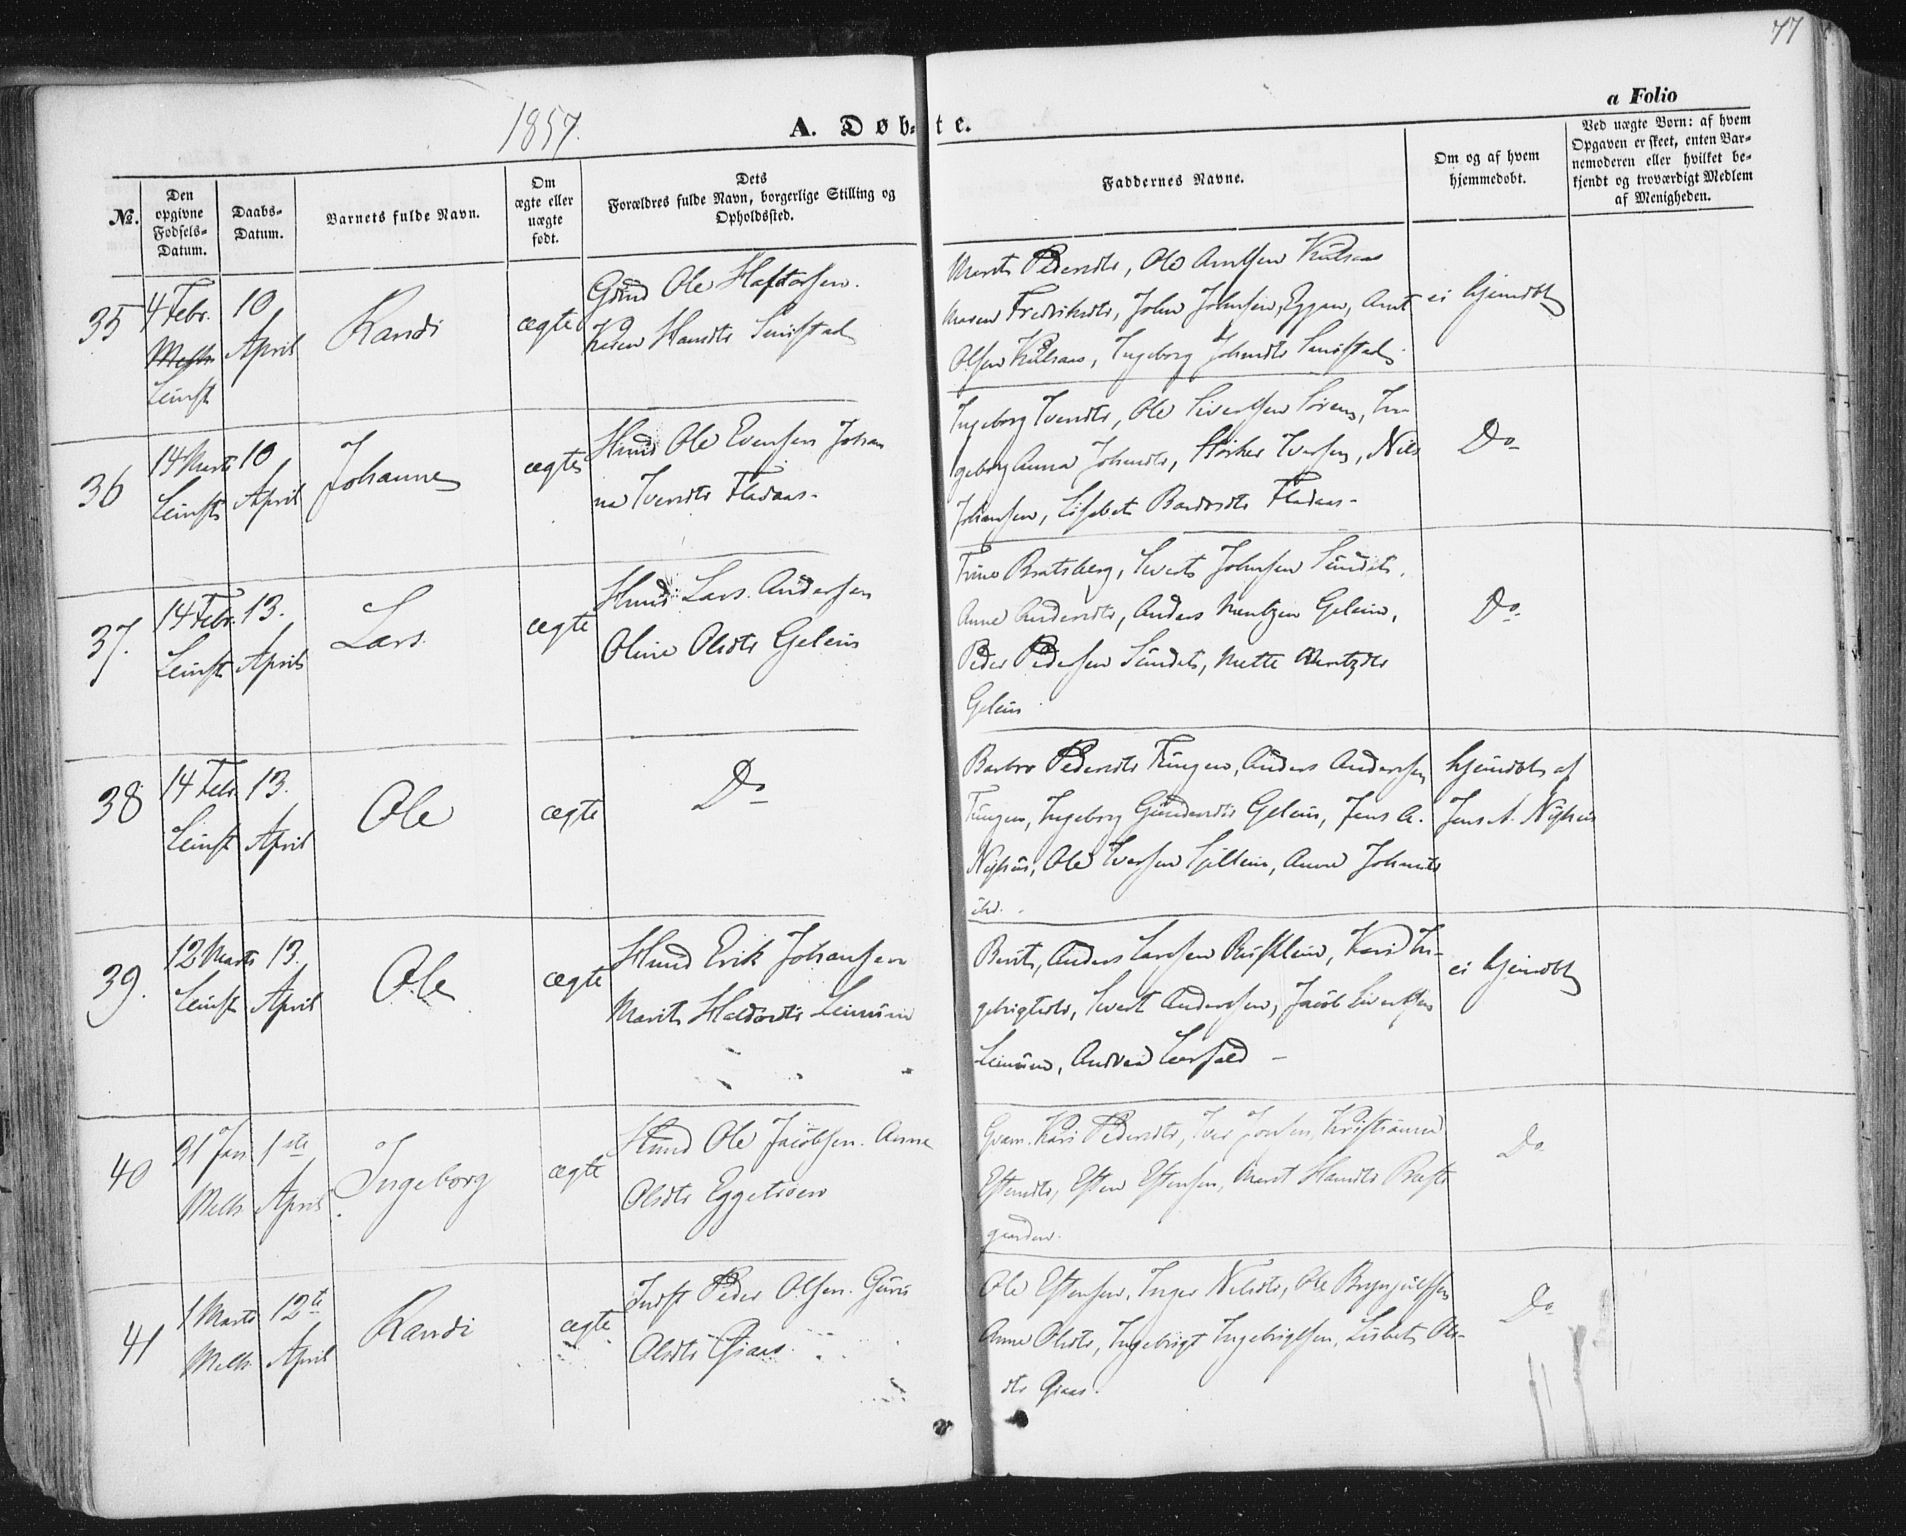 77
a Folio
1857.
A. Døb- te.
No.
Den opgivne Fødsels-Datum.
Daabs-Datum.
Barnets fulde Navn.
Om ægte eller uægte født.
Dets Forældres fulde Navn, borgerlige Stilling og Opholdssted.
Faddernes Navne.
Om og af hvem hjemmedøbt.
Ved uægte Børn: af hvem Opgaven er skeet, enten Barnemoderen eller hvilket bekjendt og troværdigt Medlem af Menigheden.
35
4 Febr.
Leinst
10
April
Randi
ægte
Gbrd Ole Haftorsen.
Karen Hansdtr
Marit Pedersdtr, Ole Arntsen
Maren Fredriksdtr, John Johnsen, Eggen, Arnt
Olsen, Ingeborg Johnsdtr
ei hjemdbt
36
14 Marts
Leinst
10
April
Johannes
ægte
Hmd Ole Evensen Johan
na Iversdtr Fladaas-
Ingeborg Iversdtr, Ole Sivertsen, In-
geborg Anna Johnsdtr, Størker Iversen, Nils
Johansen, Lisabet Bardosdtr Fladaas-
Do
37.
14 Febr.
Leinst
13.
April
Lars.
ægte
Hmd Lars Andersen
Oline Olsdtr Gjelein
Trine Bratsberg, Sivert Johnsen Sundet,
Anne Andersdtr, Anders Mentzen Gjelein,
Peder Pedersen Sundet, Mette Mentzdtr
Gjelein
Do
38
14 Febr
Leinst
13.
April
Ole
ægte
Do
Barbro Pedersdtr, Anders Andersen
Ingeborg Gundersdtr Gjelein, Jens A.
Nyhus, Ole Iversen, Anne Johansdtr
ibd.
hjemdbt af
Jens A. Nyhus
39.
12 Marts
Leinst
13.
April
Ole
ægte
Hmd Erik Johansen
Marit Haldorsdtr Leinum
Berit, Anders Larsen, Kari In-
gebrigtsdtr, Sivert Andersen, Jacob Sivertsen
Leinum, Andrea Leersald -
ei hjemdbt
40
31 Jan
Melh.
1ste
April
Ingeborg
ægte
Hmd Ole Jacobsen. Anne
Olsdtr Eggetrøen
Gram. Kari Pedersdtr, Iver Jonsen, Kristianna
Estensdtr, Esten Estensen, Marit Hansdtr Præste
gaarden.
Do
41
1 Marts
Melh.
12te
April
Randi
ægte
Indst Peder Olsen. Guru
Olsdtr Qiaas.
Ole Estensen, Inger Nilsdtr, Ole Brynjulfsen
Anne Olsdtr, Ingebrigt Ingebrigtsen, Lisbet Ols-
dtr Qiaas.
Do